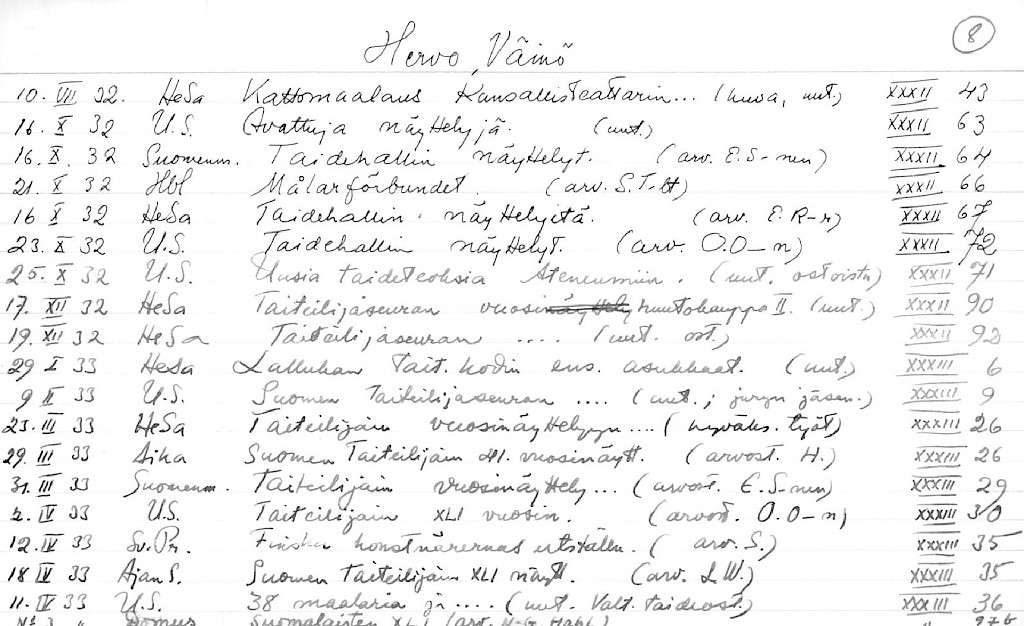 8
Hervo, Väinö
10. VII 32. HeSa Kattomaalaus Kansallisteatterin... (kuva, uut.) XXXII 43
16. X 32 U.S. Avattuja näyttelyjä. (uut.) XXXII 63
16. X. 32 Suomenm. Taidehallin näyttelyt. (arv. E.S-nen) XXXII 64
21. X 32 Hbl Målarförbundet. (arv. S.T-lt) XXXII 66
16 X 32 HeSa Taidehallin näyttelyitä. (arv. E.R-r) XXXII 67
23. X 32 U.S. Taidehallin näyttelyt. (arv. O.O-n) XXXII 72
25. X 32 U.S. Uusia taideteoksia Ateneumiin. (uut. ostoista) XXXII 71
17. XII 32 HeSa Taiteilijaseuran vuosinäyttely huutokauppa II. (uut.) XXXII 90
19. XII 32 HeSa Taiteilijaseuran .... (uut. ost.) XXXII 92
29 I 33 HeSa Lallukan Tait. kodin ens. asukkaat. (uut.) XXXIII 6
9 II 33 U.S. Suomen Taiteilijaseuran .... (uut.; juryn jäsen.) XXXIII 9
23. III 33 HeSa Taiteilijain vuosinäyttelyyn.... (hyväks. työt) XXXIII 26
29. III 33 Aika Suomen Taiteilijain XLI. vuosinäytt. (arvost. H.) XXXIII 26
31. III 33 Suomenm. Taiteilijain vuosinäyttely... (arvost. E.S-nen) XXXIII 29
2. IV 33 U.S. Taiteilijain XLI vuosin. (arvost. O.O-n) XXXIII 30
12. IV 33 Sv.Pr. Finska konstnärernas utställn. (arv. S.) XXXIII 35
18 IV 33 Ajan S. Suomen Taiteilijain XLI näytt. (arv. L.W.) XXXIII 35
11. IV 33 U.S. 38 maalaria ja .... (uut. Valt. taideost.) XXXIII 36
No 3 " Domus Suomalaisten XLI (arv. N-G. Hahl) " 37b